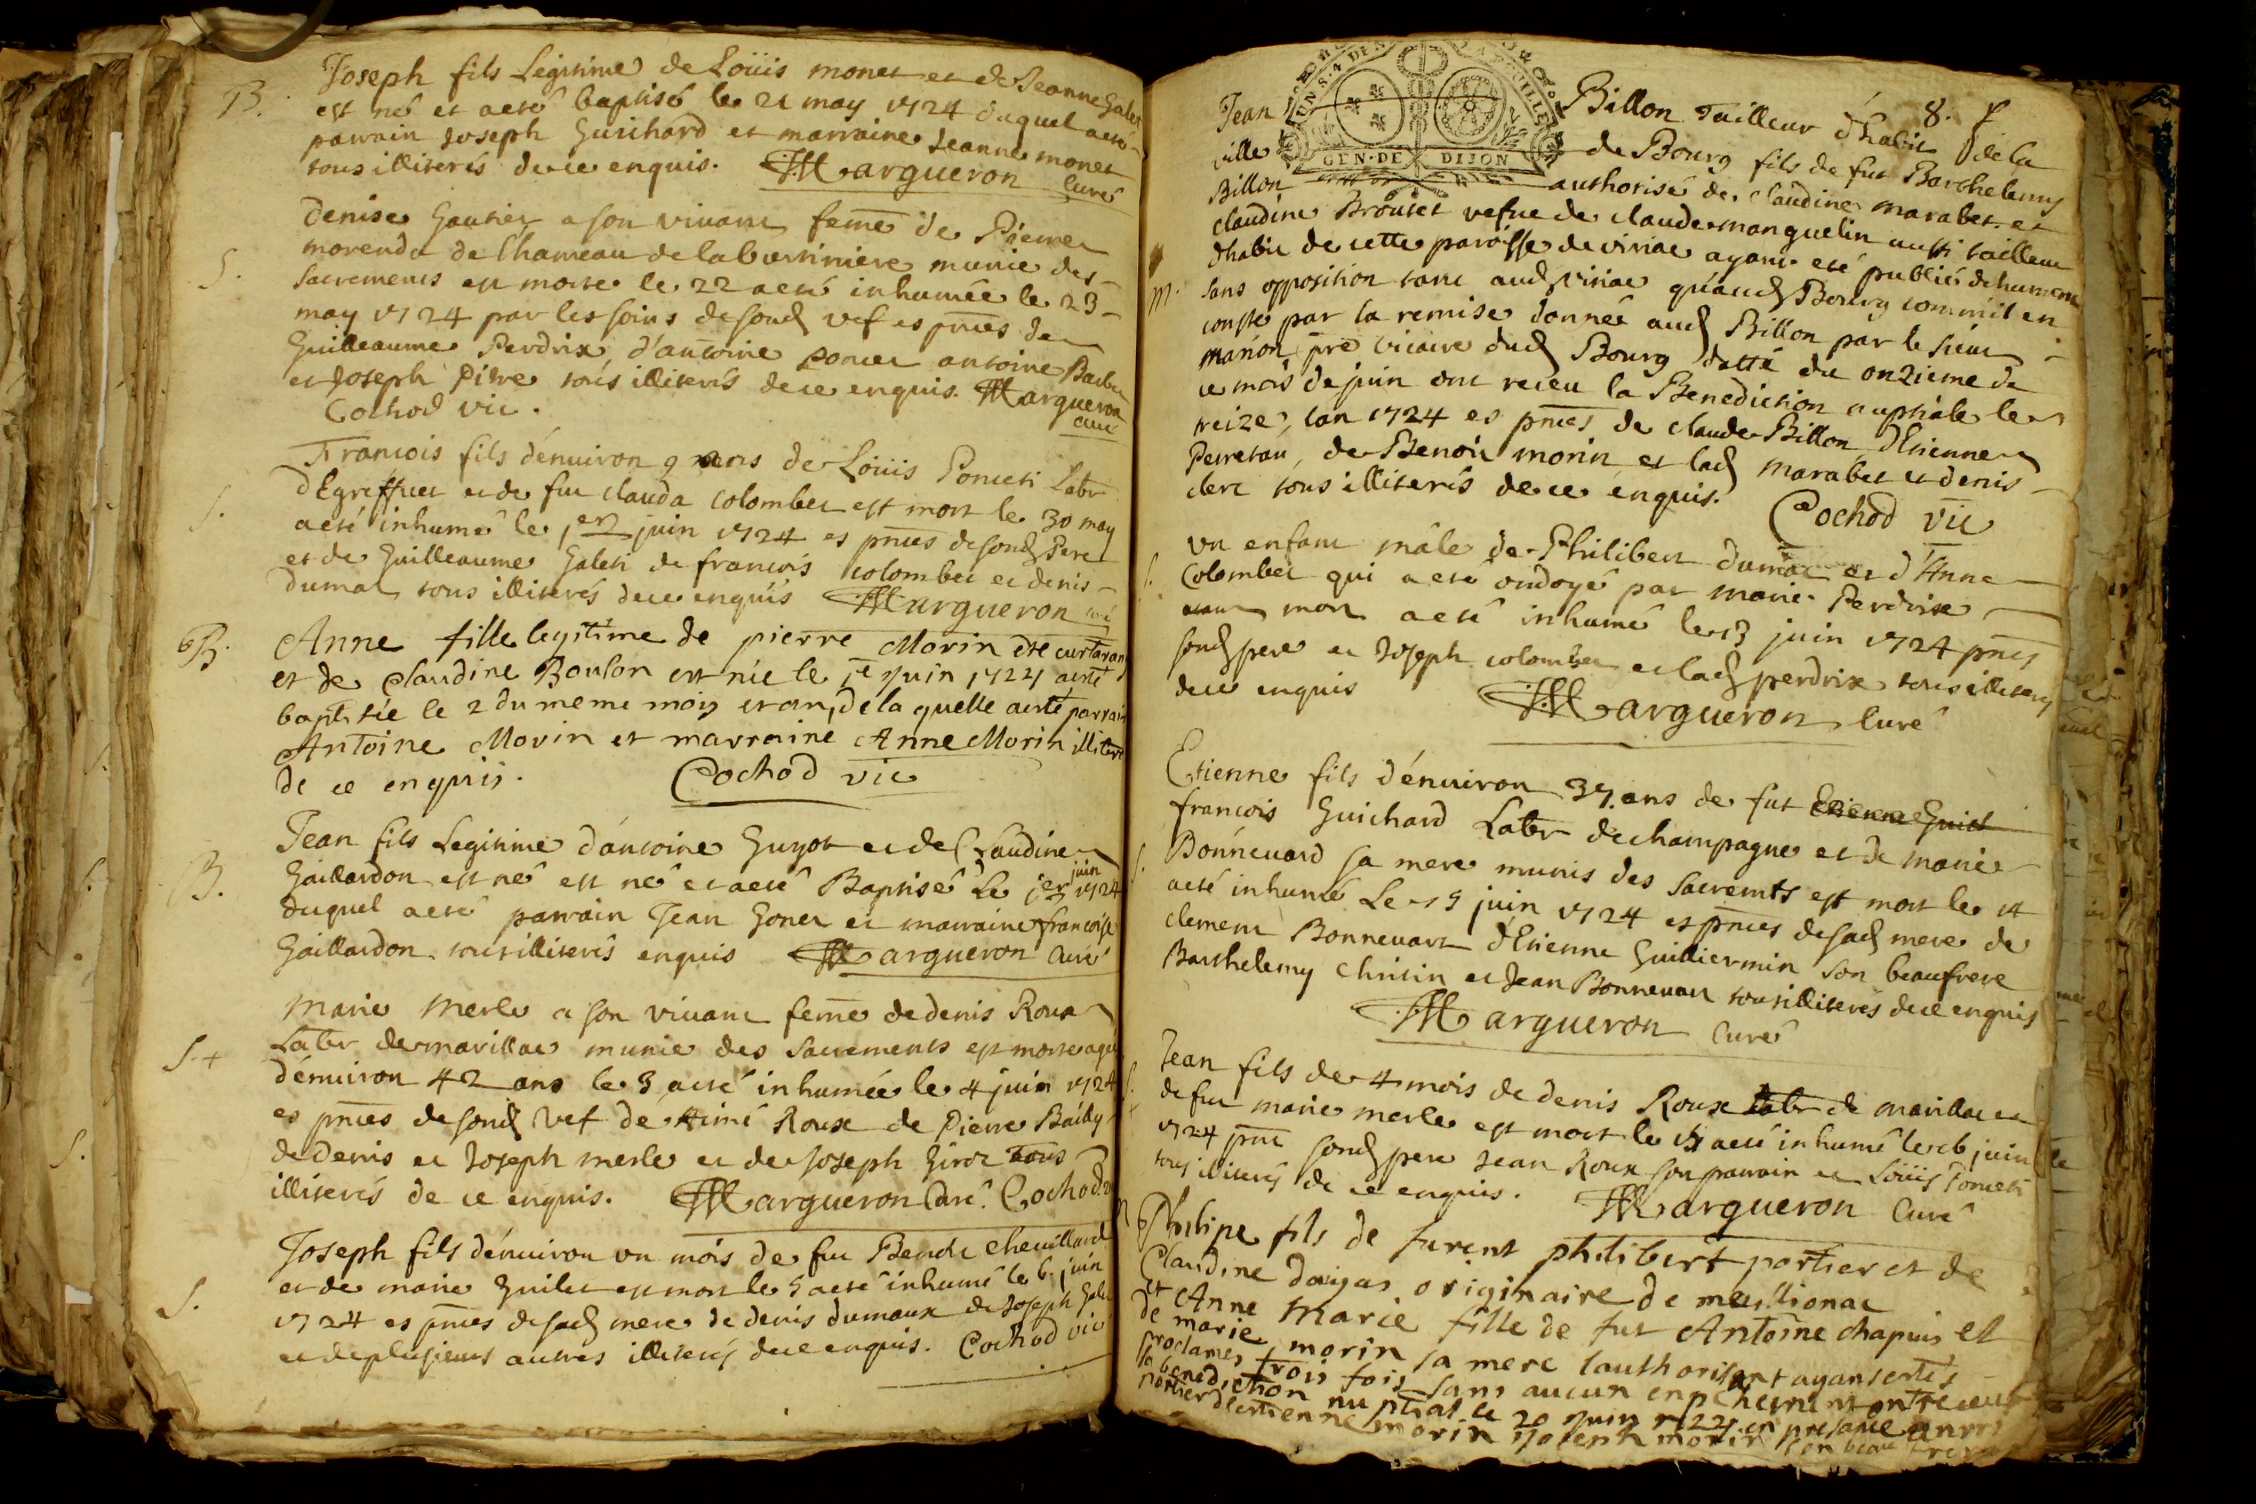 B. Joseph fils Legitime de Loüis monet et de Jeanne Galet
est né et aeté baptisé le 21 may 1724 duquel aeté
parrain Joseph Guichard et marraine Jeanne monet
tous illiterés de ce enquis. Margueron Curé
Denise Gautier a son vivant feme de Pierre
morendu de lhameau de la bertiniere munie des
S. Sacrements est morte le 22 aeté inhumée le 23
may 1724 par les soins de sond vef es pnces de
Guilleaume Perdrix, d'antoine poncet antoine Barbet
et Joseph Pitre tous illiterés de ce enquis. Margueron
Cochod vic. curé
Francois fils d'énuiron 9 ans de Loüis Poncet Labr
S. d'Egreffuet et de fue clauda colombet est mort le 30 may
aeté inhumé le 1er juin 1724 es pnces de sond Pere
et de Guilleaume Galet de francois colombet et denis
dumas tous illiterés de ce enquis Margueron curé
B. Anne fille legitime de pierre Morin dte curtaran
et de Claudine Boulon est née le 1e Juin 1724 aesté
baptisée le 2 du meme mois et an, de la quelle aesté parrain
Antoine Morin et marraine Anne Morin illiteré
de ce enquis. Cochod vic
Jean fils Legitime d'antoine Guyot et de Claudine
B. Gaillardon est né est né et aeté Baptisé Le 1er juin 1724
duquel aeté parrain Jean Gonet et marraine francoise
Gaillardon tous illiterés enquis Margueron Curé
Marie Merle a son vivant feme de denis Roux
S. + Labr de marillac munie des Sacrements est morte agée
d'énuiron 42 ans le 3 aeté inhumée le 4 juin 1724
es pnces de sond vef de Aimé Roux de Pierre Bailly
de denis et Joseph merle et de Joseph Giroz tous
illiterés de ce enquis. Margueron Curé. Cochod v
Joseph fils d'énuiron un mois de fu Benoit cheuillard
et de marie Guilet est mort le 5 aeté inhumé le 6 juin
S. 1724 es pnces de sad mere de denis dumaux de Joseph Galet
et de plusieurs autres illiterés de ce enquis. Cochod vic
8.
GEN. DE DIJON
Jean Billon Tailleur d'habit de la
ville de Bourg fils de fut Barthelemy
Billon authorisé de Claudine marabet et
claudine Broutet vefue de claude manguelin aussi tailleur
dhabit de cette paroisse de viriac ayant eté publié dehument
m. sans opposition tant aud viriac qu'aud Bourg comm'il en
conste par la remise donnée aud Billon par le sieur
marion pre vicaire dud Bourg datté du onzieme de
ce mois de juin ont receu la Benediction nuptiale le
treize, lan 1724 es pnces de claude Billon, d'Etienne
Perretan, de Benoit morin et lad marabet et denis
clerc tous illiterés de ce enquis. Cochod vic
vn enfant mâle de Philibert dumas et d'Anne
S. Colombet qui a eté ondoyé par marie Perdrix
etant mort aeté inhumé le 13 juin 1724 pnces
sond pere et Joseph colombet et lad perdrix tous illiterés
de ce enquis Margueron Curé
Etienne fils d'énuiron 37 ans de fut Etienne Guich
francois Guichard Labr de champagne et de marie
S. Bonneuard sa mere munis des Sacremts est mort le 14
aeté inhumé Le 15 juin 1724 es pnces de sad mere de
clement Bonneuart d'Etienne Guilliermin son beaufrere
Barthelemy christin et Jean Bonneuart tous illiterés de ce enquis
Margueron Curé
Jean fils de 4 mois de denis Roux Labr de marillac et
de fue marie merle est mort le 15 aeté inhumé le 16 juin
1724 pnce sond pere Jean Roux son parrain et Loüis Poncet
tous illiterés de ce enquis. Margueron Curé
Philipe fils de furent philibert portier et de
Claudine daugas originaire de meillionac
et Anne Marie fille de fut Antoine chapuis et
de marie morin sa mere lauthorisant ayant estés
proclames trois fois sans aucun enpechement ont receu
la benediction nuptial le 20 Juin 1724 en presance
portier d'estienne morin Joseph morin son beau frere